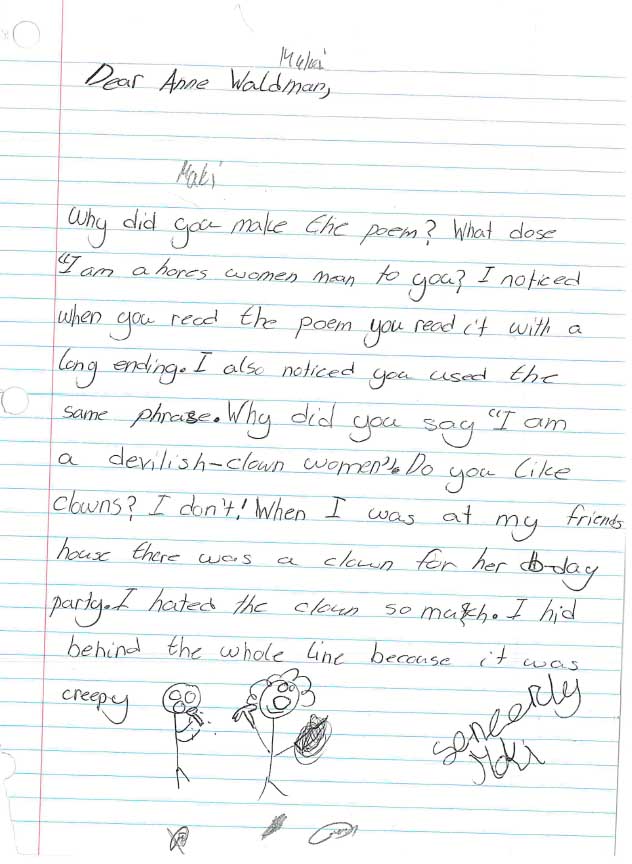 Maki
Dear Anne Waldman,
Maki
Why did you make the poem? What dose
"I am a hores women mean to you? I noticed
when you read the poem you read it with a
long ending. I also noticed you used the
same phrase. Why did you say "I am
a devilish-clown women". Do you like
clowns? I don't! When I was at my friends
house there was a clown for her b-day
party. I hated the clown so match. I hid
behind the whole line because it was
creepy
sencerly
Maki